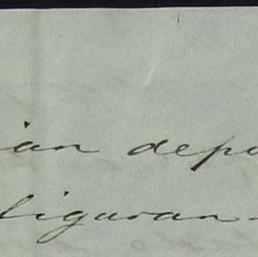 ian depo
figuran-